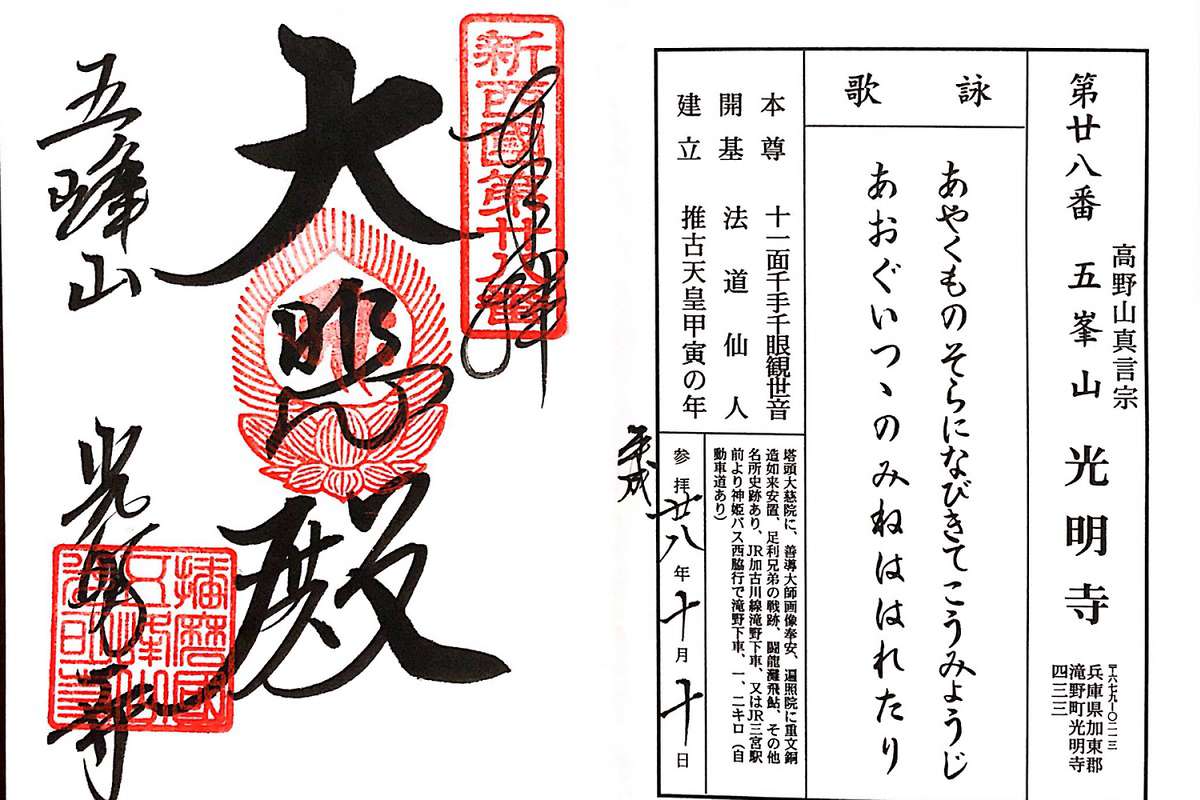 第廿八番 五峯山 光明寺
高野山真言宗
〒六七九-〇二一三
兵庫県加東郡
滝野町光明寺
四三三
詠歌
あやくものそらになびきてこうみょうじ
あおぐいつゝのみねははれたり
本尊 十一面千手千眼観世音
開基 法道仙人
建立 推古天皇甲寅の年
塔頭大慈院に、善導大師画像奉安、遍照院に重文銅
造如来安置、足利兄弟の戦跡、闘龍灘飛鮎、その他
名所史跡あり、JR加古川線滝野下車、又はJR三宮駅
前より神姫バス西脇行で滝野下車、一、二キロ（自
動車道あり）
平成
参拝廿八年十月十日
奉拝
新西國第廿八番
大悲殿
五峰山
光明寺
播磨國
五峰山
光明寺